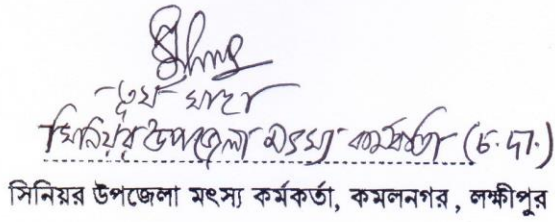 তূর্য সাহা
সিনিয়র উপজেলা মৎস্য কর্মকর্তা (চ.দা.)
সিনিয়র উপজেলা মৎস্য কর্মকর্তা, কমলনগর, লক্ষীপুর